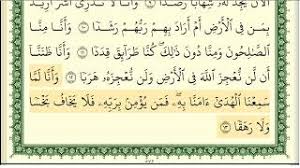 ٱلْـَٔانَ يَجِدْ لَهُۥ شِهَابًا رَّصَدًا ۝٩ وَأَنَّا لَا نَدْرِىٓ أَشَرٌّ أُرِيدَ
بِمَن فِى ٱلْأَرْضِ أَمْ أَرَادَ بِهِمْ رَبُّهُمْ رَشَدًا ۝١٠ وَأَنَّا مِنَّا
ٱلصَّٰلِحُونَ وَمِنَّا دُونَ ذَٰلِكَ ۖ كُنَّا طَرَآئِقَ قِدَدًا ۝١١ وَأَنَّا ظَنَنَّآ
أَن لَّن نُّعْجِزَ ٱللَّهَ فِى ٱلْأَرْضِ وَلَن نُّعْجِزَهُۥ هَرَبًا ۝١٢ وَأَنَّا لَمَّا
سَمِعْنَا ٱلْهُدَىٰٓ ءَامَنَّا بِهِۦ ۖ فَمَن يُؤْمِنۢ بِرَبِّهِۦ فَلَا يَخَافُ بَخْسًا
وَلَا رَهَقًا ۝١٣